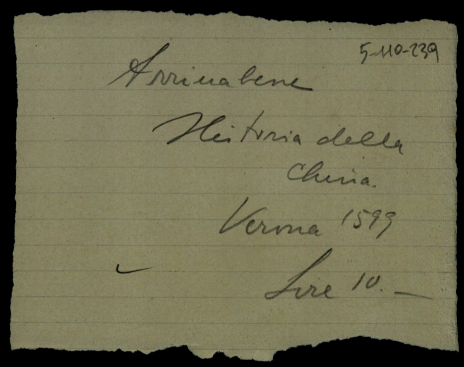 5-110-239
Arrivabene
Historia della
China.
Verona 1599
Lire 10.—